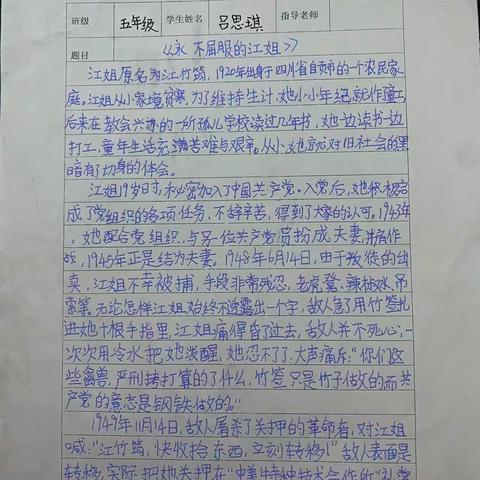 班级 五年级 学生姓名 吕思琪 指导老师
题目 《永不屈服的江姐》
江姐原名为江竹筠，1920年出身于四川省自贡市的一个农民家
庭。江姐从小家境贫寒，为了维持生计，她小小年纪就作童工，
后来在教会兴办的一所孤儿学校读过几年书，她边读书边
打工，童年生活充满苦难与艰辛。从小她就对旧社会的黑
暗有了切身的体会。
江姐19岁日寸，秘密加入了中国共产党。入党后，她积极完
成了党组织的各项任务，不辞辛苦，得到了大家的认可。1943年
，她配合党组织，与另一位共产党员扮成夫妻，并肩作
战，1945年正是结为夫妻。1948年6月14日，由于叛徒的出
卖，江姐不幸被捕，手段非常残忍，老虎登、辣椒水、吊
索等，无论怎样江姐始终不透露出一个字，敌人急了用竹签扎
进她十根手指里，江姐痛得昏了过去，敌人并不死心，一
次次用冷水把她泼醒，她忍不了，大声痛斥："你们这
些禽兽，严刑拷打算的了什么，竹签只是竹子做的而共
产党的意志是钢铁做的。"
1949年11月14日，敌人屠杀了关押的革命者，对江姐
喊："江竹筠，快收拾东西，立刻转移！"敌人表面是
转移，实际把她关押在"中美特种技术合作所"